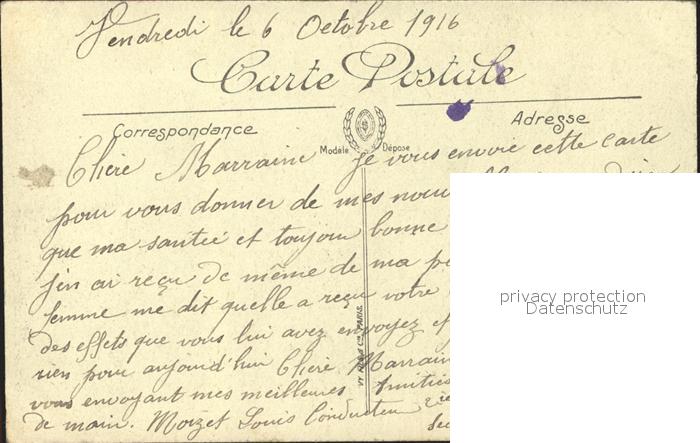 Vendredi le 6 Octobre 1916
Carte Postale
Correspondance
Adresse
Modèle Déposé
Chère Marraine je vous envoie cette carte
pour vous donner de mes nouv
que ma santée et toujour bonne
j'en ai reçu de même de ma
femme me dit quelle a reçu votre
des effets que vous lui avez envoyez et
rien pour aujourd'hui Chère Marrain
vous envoyant mes meilleures amitiés
de main. Louis Conducteur
PARIS
privacy protection
Datenschutz